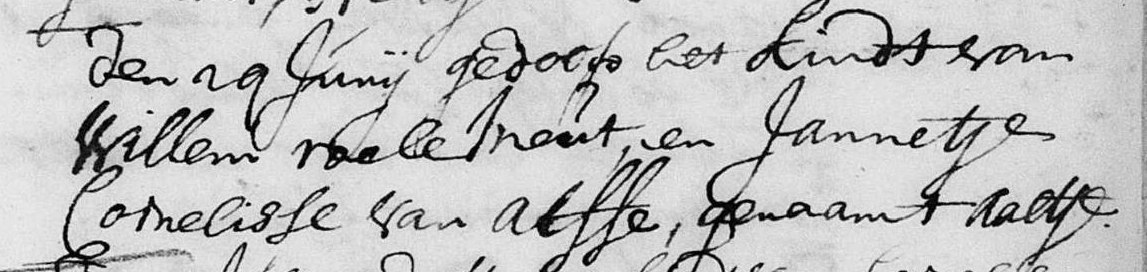 den 29 Junij gedoopt het kindt van
Willem neut, en Jannetje
Cornelisse van alffe, genaamt Aaltje.